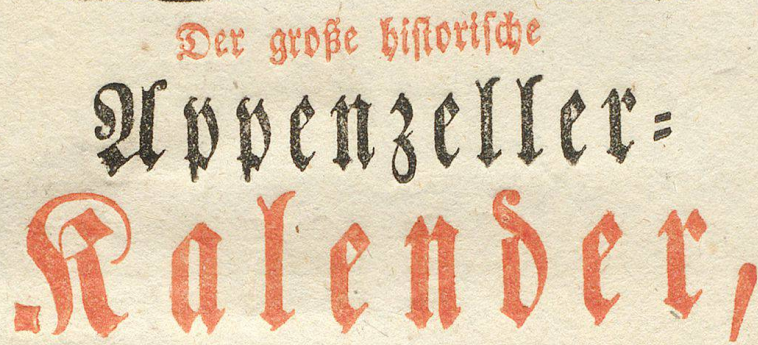 Der große historische
Appenzeller=
Kalender,